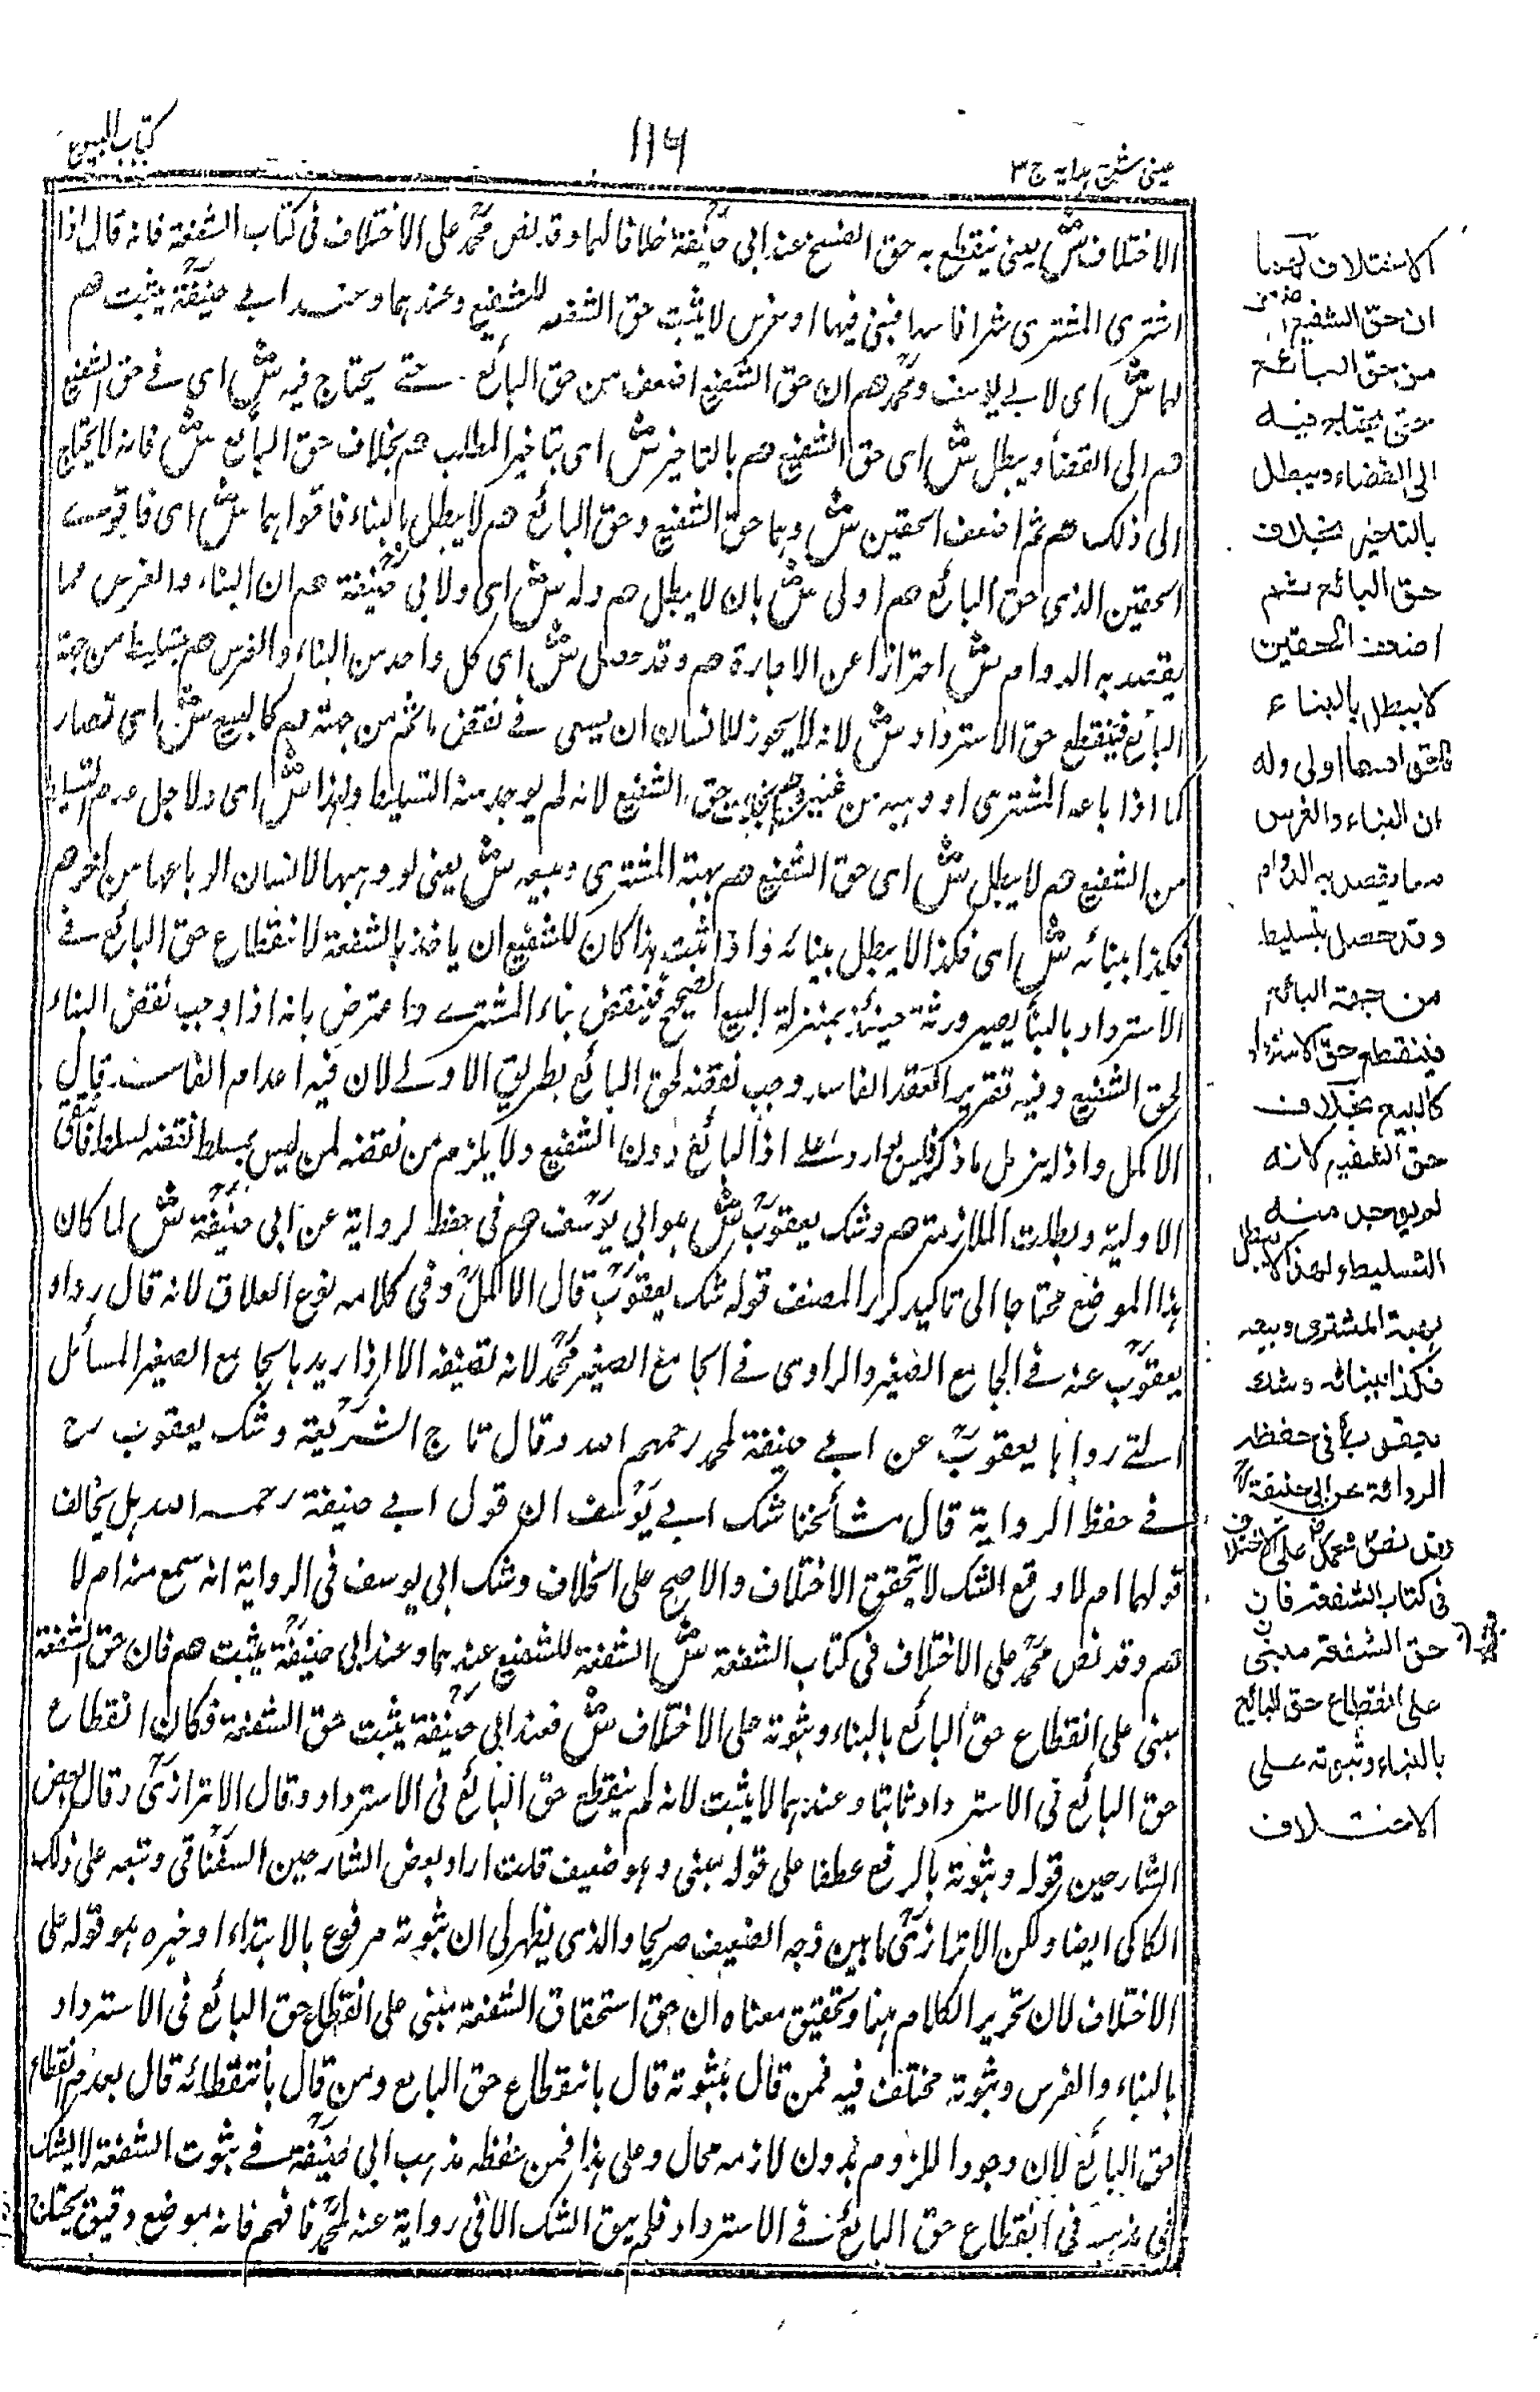 عینی شرح ہدایہ ج ۳
۱۱۶
کتاب البیوع
الاختلاف ش یعنی ینقطع به حق الفسخ عند ابی حنیفة خلافا لهما وقد نص محمد علی الاختلاف فی کتاب الشفعة فانه قال اذا
اشتری المشتری شراء فاسدا فبنی فیها او غرس لا یثبت حق الشفعه للشفیع وعندهما وعند ابی حنیفة یثبت هم
لهما ش ای لابی یوسف ومحمد هم ان حق الشفیع اضعف من حق البائع حتی یحتاج فیه ش ای فی حق الشفیع
هم الی القضاء ویبطل ش ای حق الشفیع هم بالتاخیر ش ای بتاخیر الطلب هم بخلاف حق البائع ش فانه لا یحتاج
الی ذلک هم ثم اضعف الحقین ش وهما حق الشفیع وحق البائع هم لا یبطل بالبناء فاقواهما ش ای فاقوی
الحقین الذی حق البائع هم اولی ش بان لا یبطل هم وله ش ای ولابی حنیفة هم ان البناء والغرس مما
یقصد به الدوام ش احترازا عن الاجارة هم وقد حصل ش ای کل واحد من البناء والغرس هم بتسلیط من جهة
البائع فینقطع حق الاسترداد ش لانه لا یجوز للانسان ان یسعی فی نقض ما تم من جهته هم کالبیع ش ای فصار
کما اذا باعه المشتری او وهبه من غیره هم بخلاف حق الشفیع لانه لم یوجد منه التسلیط ولهذا ش ای ولاجل عدم التسلیط
من الشفیع هم لا یبطل ش ای حق الشفیع هم بهبة المشتری وبیعه ش یعنی لو وهبها لانسان او باعها من آخر هم
فکذا ببنائه ش ای فکذا لا یبطل ببنائه واذا ثبت هذا کان للشفیع ان یاخذ بالشفعة لانقطاع حق البائع فی
الاسترداد بالبناء لصیرورته حینئذ بمنزلة البیع الصحیح فینقض بناء المشتری واعترض بانه اذا وجب نقض البناء
لحق الشفیع وفیه تقریر العقد الفاسد وجب نقضه لحق البائع بطریق الاولی لان فیه اعدام الفاسد قال
الاکمل واذا ... ما ذکر فلیس بوارد ... البائع دون الشفیع ولا یلزم من نقضه لمن لیس بمسلط نقضه لمسلط فانتفی
الاولیة وبطلت الملازمة هم وشک یعقوب ش هو ابی یوسف هم فی حفظ الروایة عن ابی حنیفة ش لما کان
هذا الموضع محتاجا الی تاکید کرر المصنف قوله شک یعقوب قال الاکمل وفی کلامه نوع انغلاق لانه قال رواه
یعقوب عنه فی الجامع الصغیر والراوی فی الجامع الصغیر محمد لانه تصنیفه الا اذا ارید بالجامع الصغیر المسائل
التی رواها یعقوب عن ابی حنیفة لمحمد رحمهم الله وقال تاج الشریعة وشک یعقوب رح
فی حفظ الروایة قال مشائخنا شک ابی یوسف ان قول ابی حنیفة رحمه الله هل یخالف
قولهما ام لا وقع الشک لا یتحقق الاختلاف والاصح علی الخلاف وشک ابی یوسف فی الروایة انه سمع منه ام لا
هم وقد نص محمد علی الاختلاف فی کتاب الشفعة ش الشفعة للشفیع عندهما وعند ابی حنیفة یثبت هم فان حق الشفعة
مبنی علی انقطاع حق البائع بالبناء وثبوته علی الاختلاف ش فعند ابی حنیفة یثبت حق الشفعة فکان انقطاع
حق البائع فی الاسترداد ثابتا وعندهما لا یثبت لانه لم ینقطع حق البائع فی الاسترداد وقال الاترازی وقال بعض
الشارحین قوله وثبوته بالرفع عطفا علی قوله مبنی وهو ضعیف قلت اراد ببعض الشارحین السغناقی وتبعه علی ذلک
الکاکی ایضا ولکن الاترازی ما بین وجه الضعیف صریحا والذی یظهر لی ان ثبوته مرفوع بالابتداء وخبره هو قوله علی
الاختلاف لان تحریر الکلام ههنا وتحقیق معناه ان حق استحقاق الشفعة مبنی علی انقطاع حق البائع فی الاسترداد
بالبناء والغرس وثبوته مختلف فیه فمن قال بثبوته قال بانقطاع حق البایع ومن قال بانتفائه قال بعدم انقطاع
حق البائع لان وجود الملزوم بدون لازمه محال وعلی هذا فمن حفظه مذهب ابی حنیفة فی ثبوت الشفعة لا یشک
فی مذهبه فی انقطاع حق البایع فی الاسترداد فلم یبق الشک الا فی روایة عنه لمحمد فافهم فانه موضع دقیق یحتاج
الاختلاف لهما
ان حق الشفیع اضعف
من حق البائع
حتی یحتاج فیه
الی القضاء ویبطل
بالتاخیر بخلاف
حق البائع ثم
اضعف الحقین
لا یبطل بالبناء
فاقواهما اولی وله
ان البناء والغرس
مما یقصد به الدوام
وقد حصل بتسلیط
من جهة البائع
فینقطع حق الاسترداد
کالبیع بخلاف
حق الشفیع لانه
لم یوجد منه
التسلیط ولهذا لا یبطل
بهبة المشتری وبیعه
فکذا ببنائه وشک
یعقوب فی حفظ
الروایة عن ابی حنیفة
وقد نص محمد علی الاختلاف
فی کتاب الشفعة فان
حق الشفعة مبنی
علی انقطاع حق البائع
بالبناء وثبوته علی
الاختلاف